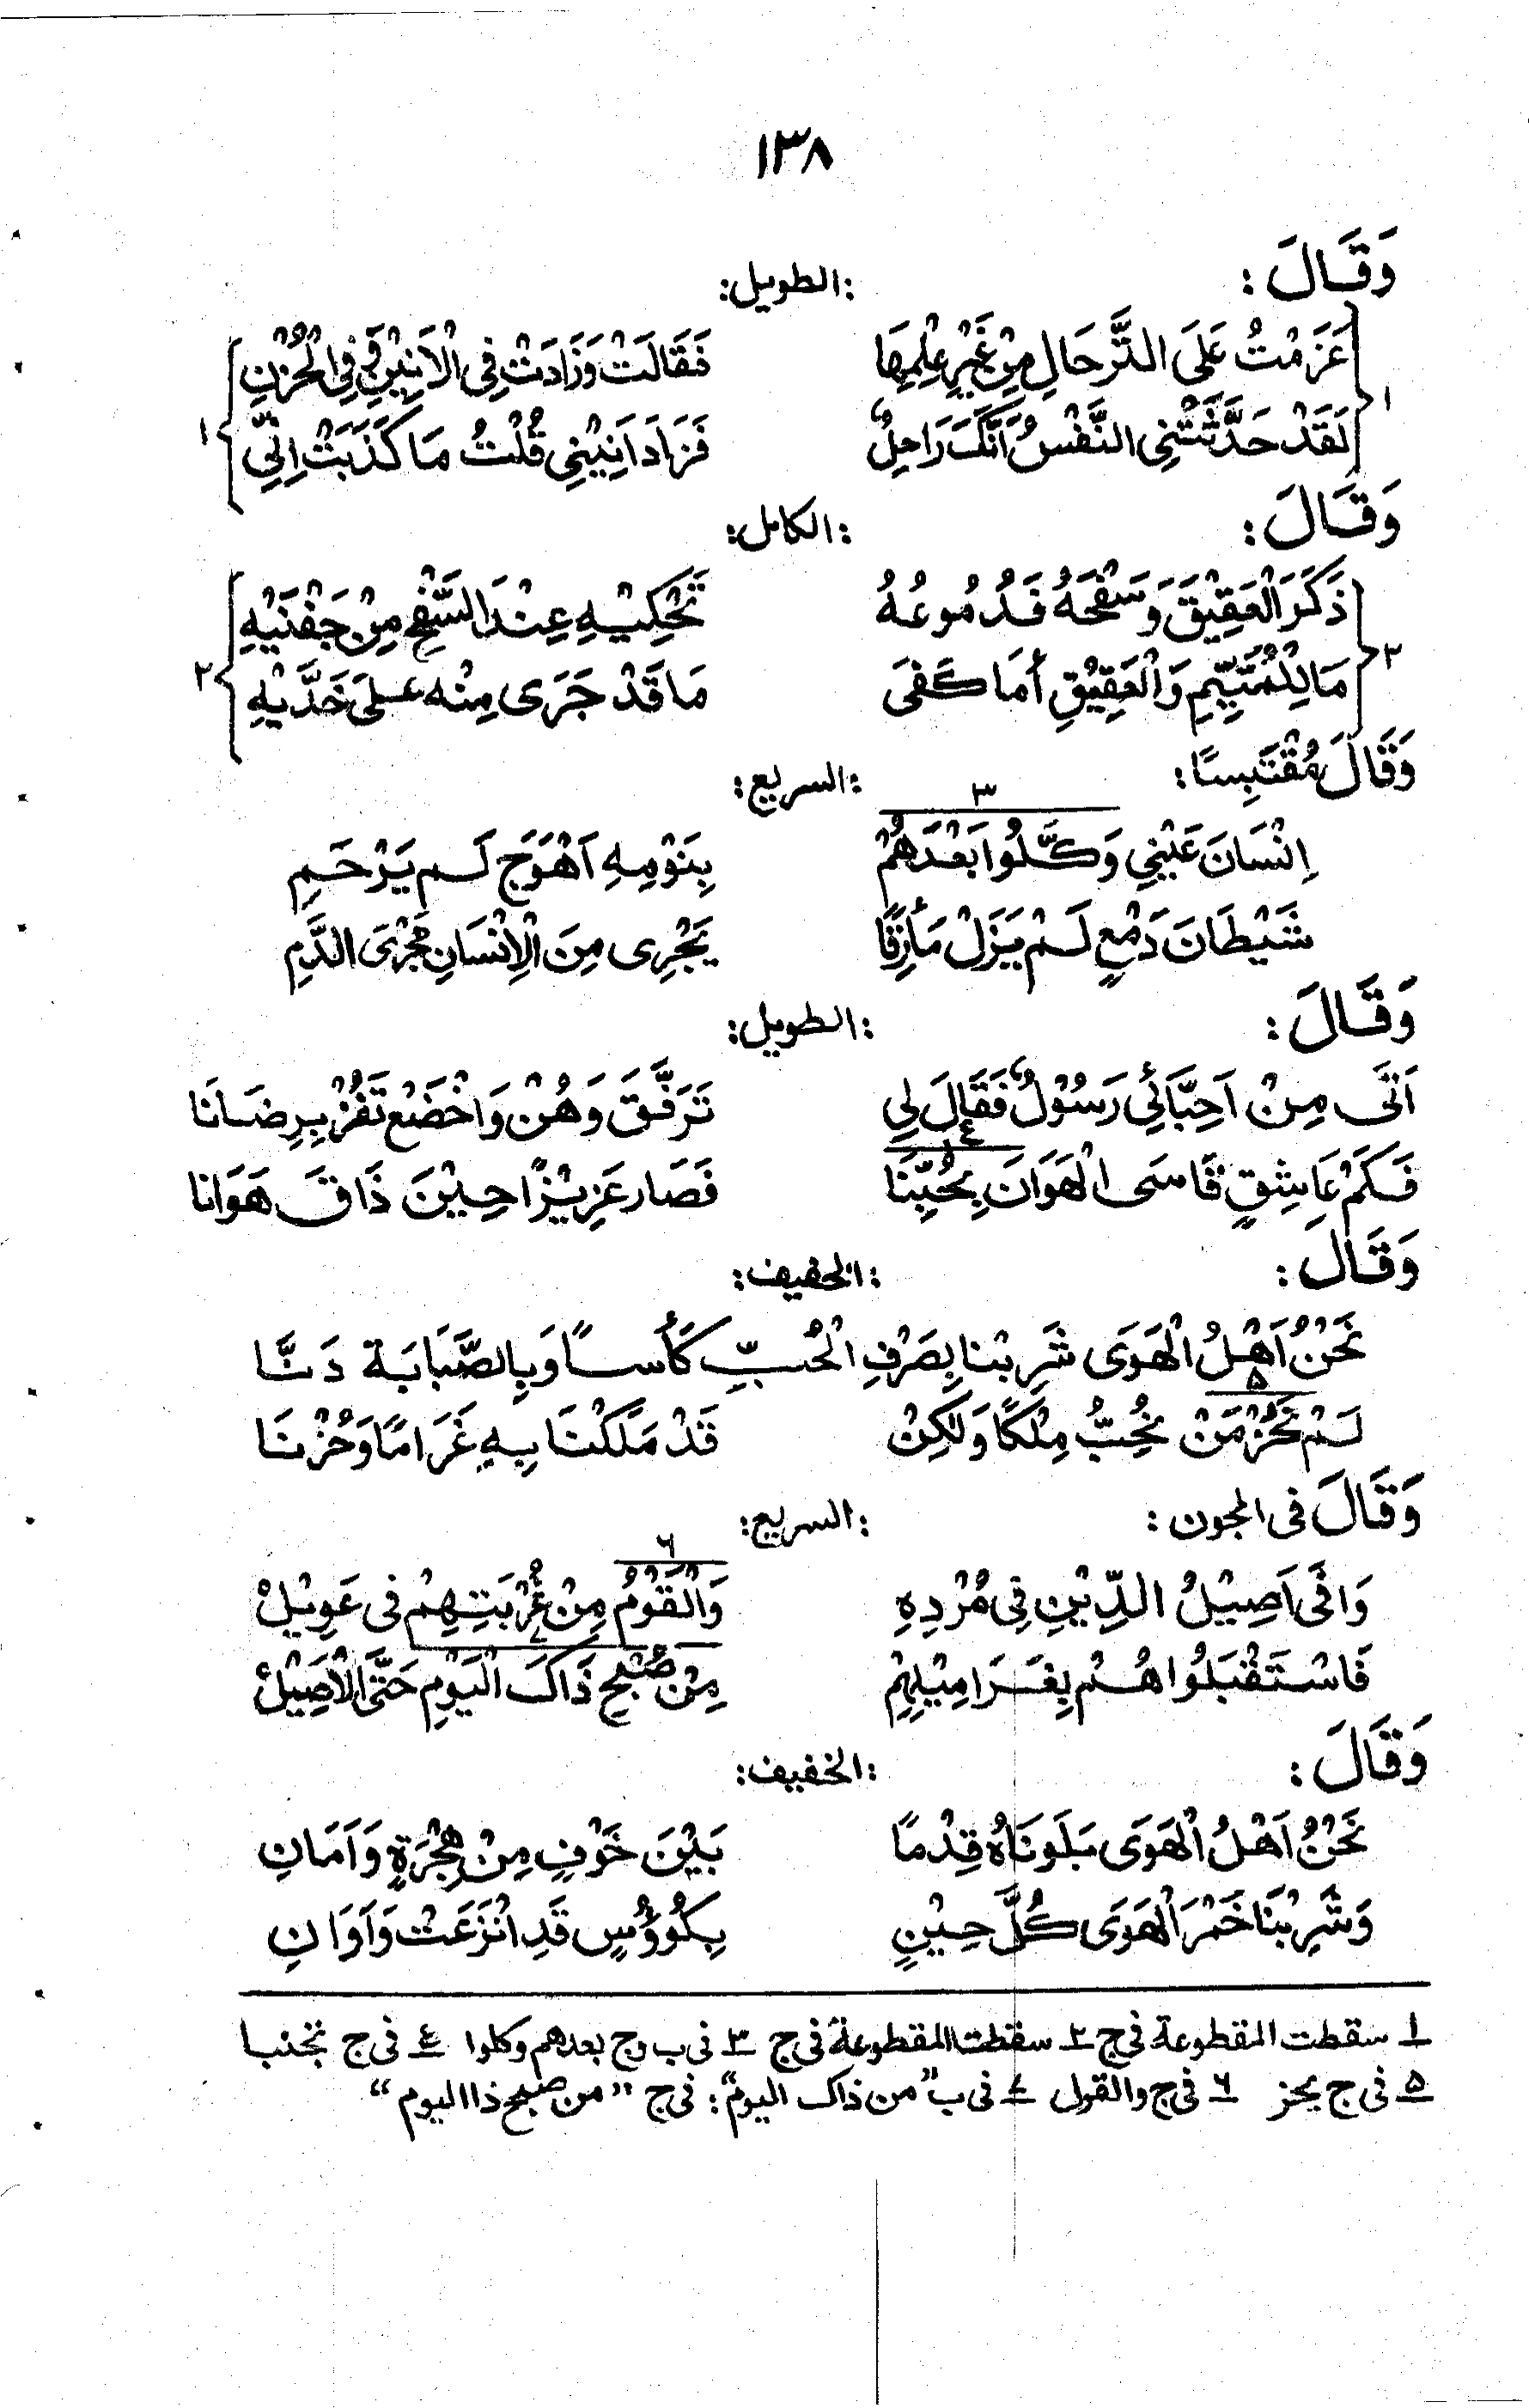 ١٣٨
وَقَالَ : :الطويل:
١ عَزَمْتُ عَلَى التَّرحَالِ مِنْ غَيْرِ عِلْمِهَا فَقَالَتْ وَزَادَتْ فِي الْاَنِيْنِ وَفِي الْحُزْنِ
لَقَدْ حَدَّثَتْنِي النَّفْسُ اَنَّكَ رَاحِلٌ فَزَادَ اَنِيْنِي قُلْتُ مَا كَذَبَتْ اِنِّي ١
وَقَالَ : :الكامل:
ذَكَرَ الْعَقِيْقَ وَسَفْحَهُ فَدُمُوعُهُ تَحْكِيْهِ عِنْدَ السَّفْحِ مِنْ جَفْنَيْهِ
٢ مَا لِلْمُتَيَّمِ وَالْعَقِيْقِ أَمَا كَفَى مَا قَدْ جَرَى مِنْه عَلَى خَدَّيْهِ ٢
وَقَالَ مُقْتَبِسًا : :السريع:
٣
اِنْسَانَ عَيْنِي وَكَّلُوا بَعْدَهُمْ بِنَوْمِهِ اَهْوَج لَم يَرْحَمِ
شَيْطَانَ دَمْعٍ لَمْ يَزَلْ مَأزِقًا يَجْرِى مِنَ الْاِنْسَانِ مَجْرَى الدَّمِ
وَقَالَ : :الطويل:
اَتَى مِنْ اَحِبَّائِي رَسُوْلٌ فَقَالَ لِي تَرَفَّقَ وَهُنْ وَاخْضَعْ تَفُزْ بِرِضَانَا
٤
فَكَمْ عَاشِقٍ قَاسَى الْهَوَانَ بِحُبِّنَا فَصَار عَزِيْزًا حِيْنَ ذَاقَ هَوَانَا
وَقَالَ : :الخفيف:
نَحْنُ اَهْلُ الْهَوَى شَرِبْنا بِصَرْفِ الْحُبِّ كَأْسًا وَبِالصَّبَابَة دَنَّا
٥
لَمْ نَحُزْ مَنْ نُحِبُّ مِلْكًا وَلٰكِنْ قَدْ مَلَكْنَا بِهِ غَرَامًا وَحُزْنَا
وَقَالَ فى المجون : :السريع:
٦
وَافَى اَصِيْلُ الدِّيْنِ فِي مُرْدِهِ وَالْقَوْمُ مِنْ غُرْبَتِهِمْ فى عَوِيْلْ
٧
فَاسْتَقْبَلُوا هُمْ بِغَرَامِيْلِهِمْ مِنْ صُبْحِ ذَاكَ الْيَوْمِ حَتَّى الْاَصِيْلْ
وَقَالَ : :الخفيف:
نَحْنُ اَهْلُ الْهَوَى بَلَونَاهُ قِدْمًا بَيْنَ خَوْفٍ مِنْ هِجْرَةٍ وَاَمَانِ
وَشَرِبْنَا خَمْرَ الْهَوَى كُلَّ حِيْنٍ بِكُوؤُسٍ قَدِ انْزَعَتْ وَاَوَانِ
١ سقطت المقطوعة فى ج ٢ سقطت المقطوعة فى ج ٣ فى ب وج بعدهم وكلوا ٤ فى ج تجنبا
٥ فى ج يحز ٦ فى ج والقول ٧ فى ب "من ذاك اليوم"؛ فى ج "من صبح ذا اليوم"